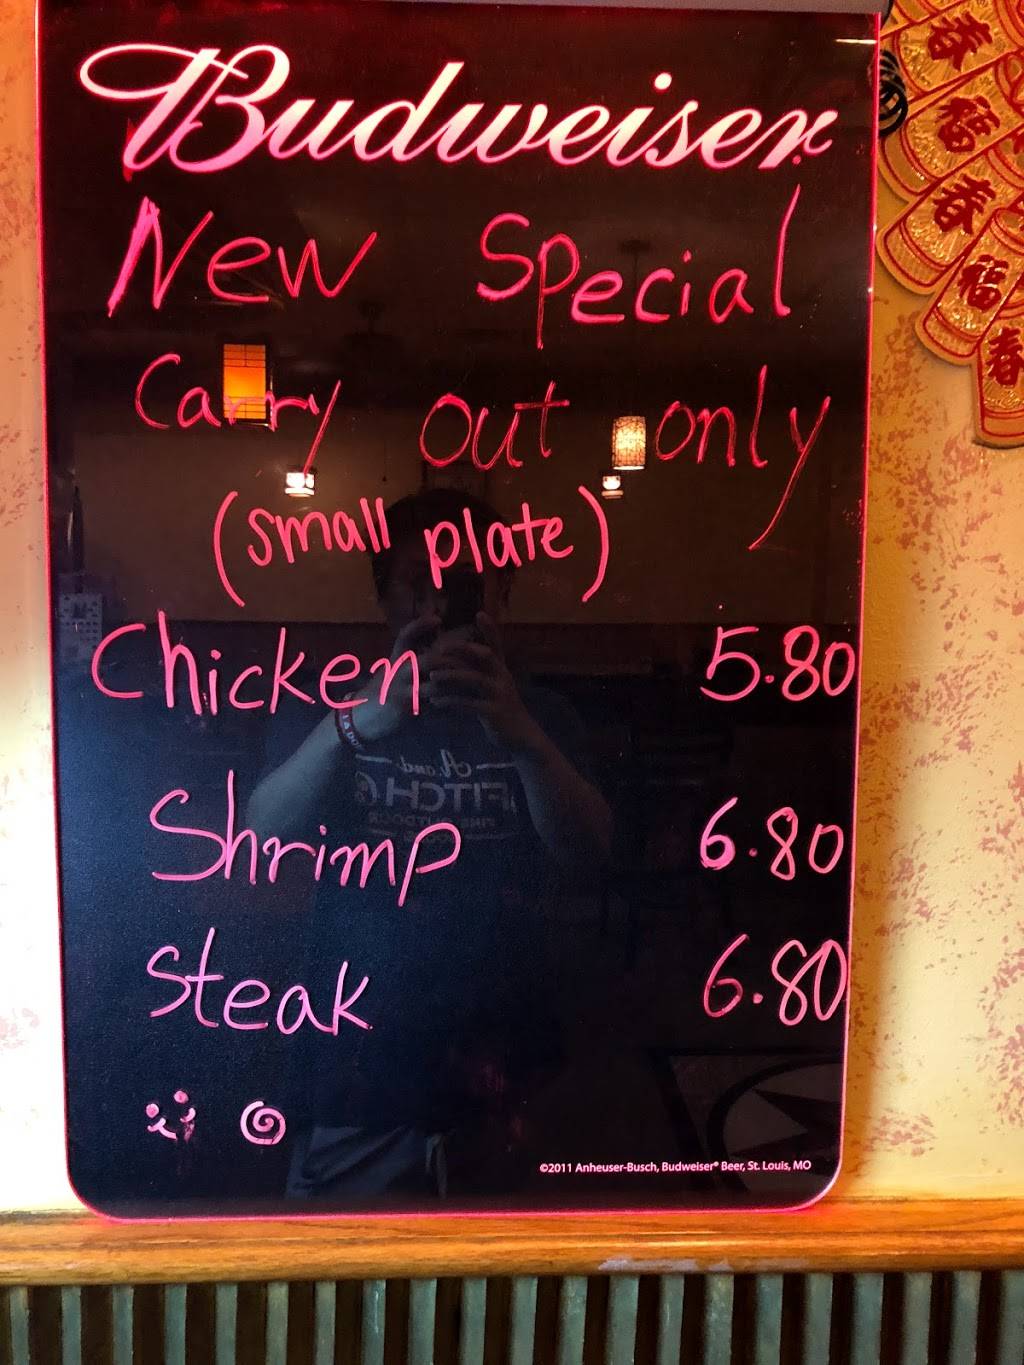 Budweiser
New Special
Carry out only
(small plate)
Chicken 5.80
Shrimp 6.80
Steak 6.80
©2011 Anheuser-Busch, Budweiser® Beer, St. Louis, MO
春
福
春
福
春
A and
FITCH
FINE OUTDOOR